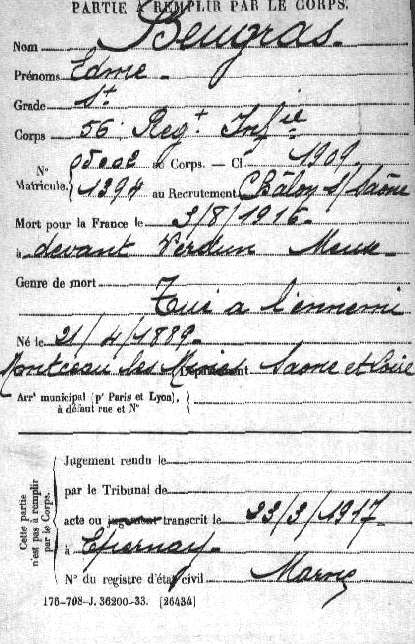 PARTIE À REMPLIR PAR LE CORPS.
Nom Beugras.
Prénoms Edme.
Grade St
Corps 56e Regt Infie
Nos Matricule. { 05002 au Corps. — Cl. 1909.
1394 au Recrutement Châlon s/ Saône
Mort pour la France le 3/8/1916.
à devant Verdun Meuse
Genre de mort
Tué a l'ennemi
Né le 21/4/1889.
Montceau les Mines Département Saone et Loire
Arrt municipal (pr Paris et Lyon), à défaut rue et No {
Cette partie n'est pas à remplir par le Corps.
Jugement rendu le
par le Tribunal de
acte ou jugement transcrit le 23/3/1917.
à Epernay.
No du registre d'état civil Marne
176-708-J. 36200-33. [26434]